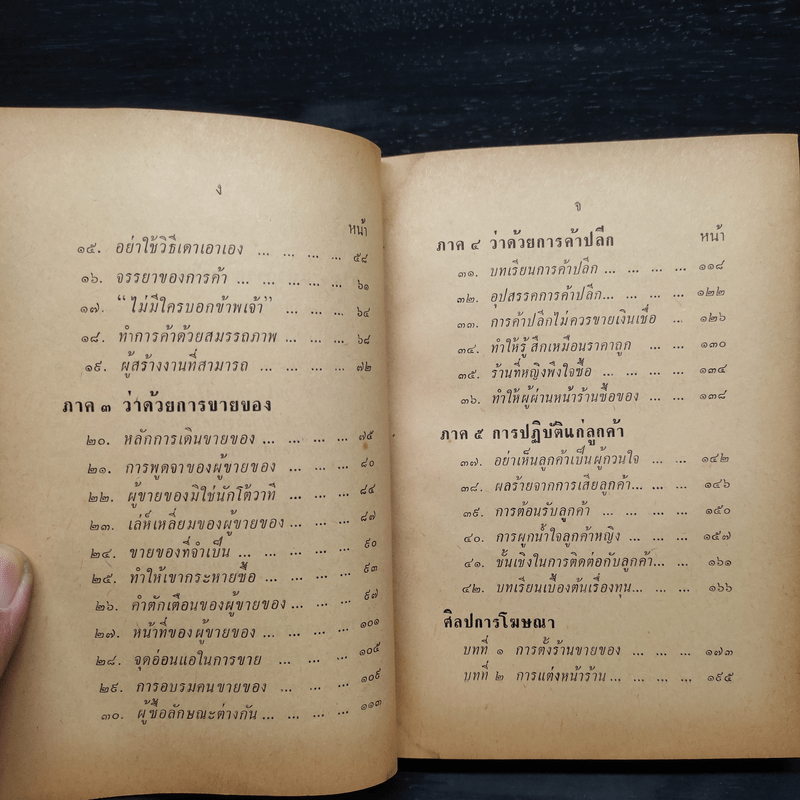 ง
หน้า
๑๕. อย่าใช้วิธีเดาเอาเอง ... ... ... ... ๕๘
๑๖. จรรยาของการค้า ... ... ... ... ... ๖๑
๑๗. “ไม่มีใครบอกข้าพเจ้า” ... ... ... ๖๔
๑๘. ทำการค้าด้วยสมรรถภาพ ... ... ... ๖๘
๑๙. ผู้สร้างงานที่สามารถ ... ... ... ... ๗๒
ภาค ๓ ว่าด้วยการขายของ
๒๐. หลักการเดินขายของ ... ... ... ... ๗๕
๒๑. การพูดจาของผู้ขายของ ... ... ... ๘๐
๒๒. ผู้ขายของมิใช่นักโต้วาที ... ... ... ๘๔
๒๓. เล่ห์เหลี่ยมของผู้ขายของ ... ... ... ๘๗
๒๔. ขายของที่จำเป็น ... ... ... ... ... ๙๐
๒๕. ทำให้เขากระหายซื้อ ... ... ... ... ๙๓
๒๖. คำตักเตือนของผู้ขายของ ... ... ... ๙๗
๒๗. หน้าที่ของผู้ขายของ ... ... ... ... ๑๐๑
๒๘. จุดอ่อนแอในการขาย ... ... ... ๑๐๕
๒๙. การอบรมคนขายของ ... ... ... ... ๑๐๙
๓๐. ผู้ซื้อลักษณะต่างกัน ... ... ... ... ๑๑๓
จ
ภาค ๔ ว่าด้วยการค้าปลีก หน้า
๓๑. บทเรียนการค้าปลีก ... ... ... ... ๑๑๘
๓๒. อุปสรรคการค้าปลีก... ... ... ... ๑๒๒
๓๓. การค้าปลีกไม่ควรขายเงินเชื่อ ... ๑๒๖
๓๔. ทำให้รู้สึกเหมือนราคาถูก ... ... ๑๓๐
๓๕. ร้านที่หญิงพึงใจซื้อ ... ... ... ... ๑๓๔
๓๖. ทำให้ผู้ผ่านหน้าร้านซื้อของ ... ... ๑๓๘
ภาค ๕ การปฏิบัติแก่ลูกค้า
๓๗. อย่าเห็นลูกค้าเป็นผู้กวนใจ ... ... ๑๔๒
๓๘. ผลร้ายจากการเสียลูกค้า... ... ... ๑๔๖
๓๙. การต้อนรับลูกค้า ... ... ... ... ๑๕๐
๔๐. การผูกน้ำใจลูกค้าหญิง ... ... ... ๑๕๗
๔๑. ชั้นเชิงในการติดต่อกับลูกค้า... ... ๑๖๑
๔๒. บทเรียนเบื้องต้นเรื่องทุน... ... ... ๑๖๖
ศิลปการโฆษณา
บทที่ ๑ การตั้งร้านขายของ ... ... ... ๑๗๓
บทที่ ๒ การแต่งหน้าร้าน ... ... ... ... ๑๙๕